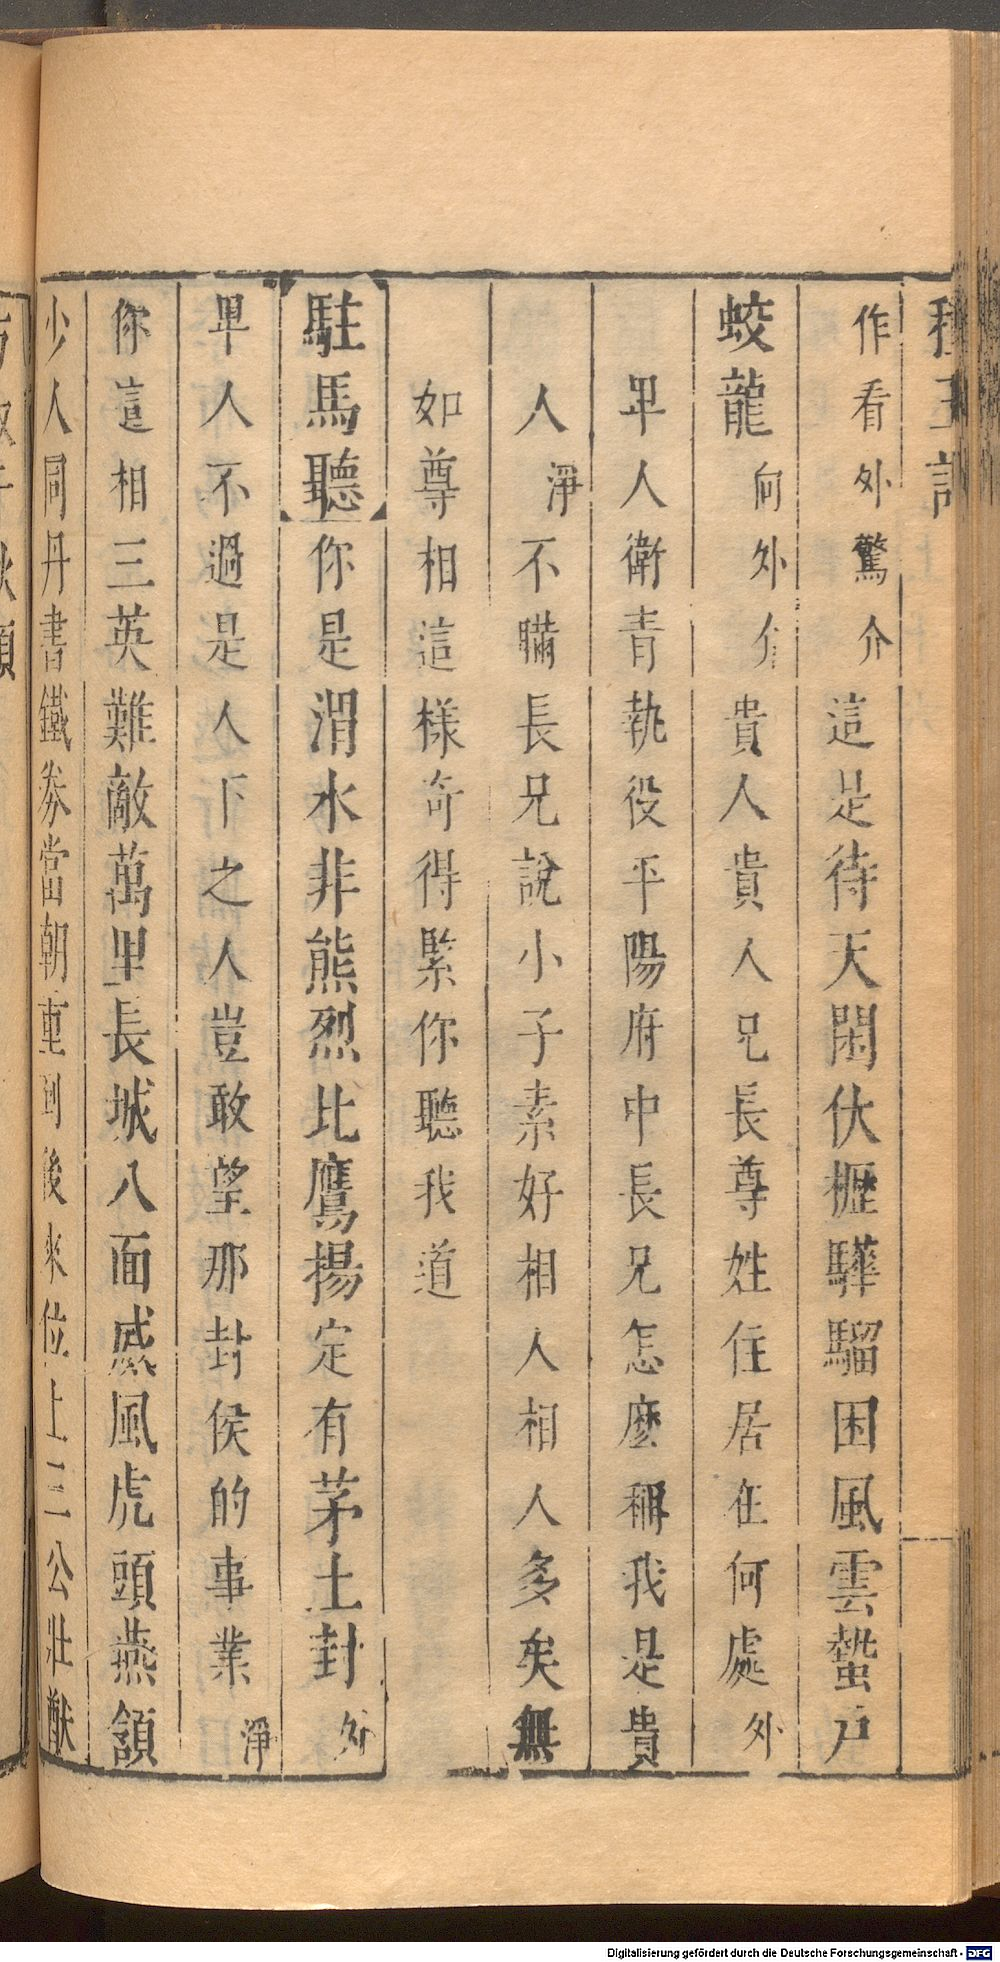 種玉記
作看外驚介這是待天閑伏櫪驊騮困風雲蟄戸
蛟龍向外介貴人貴人兄長尊姓住居在何處外
卑人衛青執役平陽府中長兄怎麼稱我是貴
人淨不瞞長兄說小子素好相人相人多矣無
如尊相這樣奇得緊你聽我道
駐馬聽你是渭水非熊烈比鷹揚定有茅土封外
卑人不過是人下之人豈敢望那封侯的事業淨
你這相三英難敵萬里長城八面威風虎頭燕頷
少人同丹書鐵券當朝重到後來位上三公壯猷
Digitalisierung gefördert durch die Deutsche Forschungsgemeinschaft - DFG